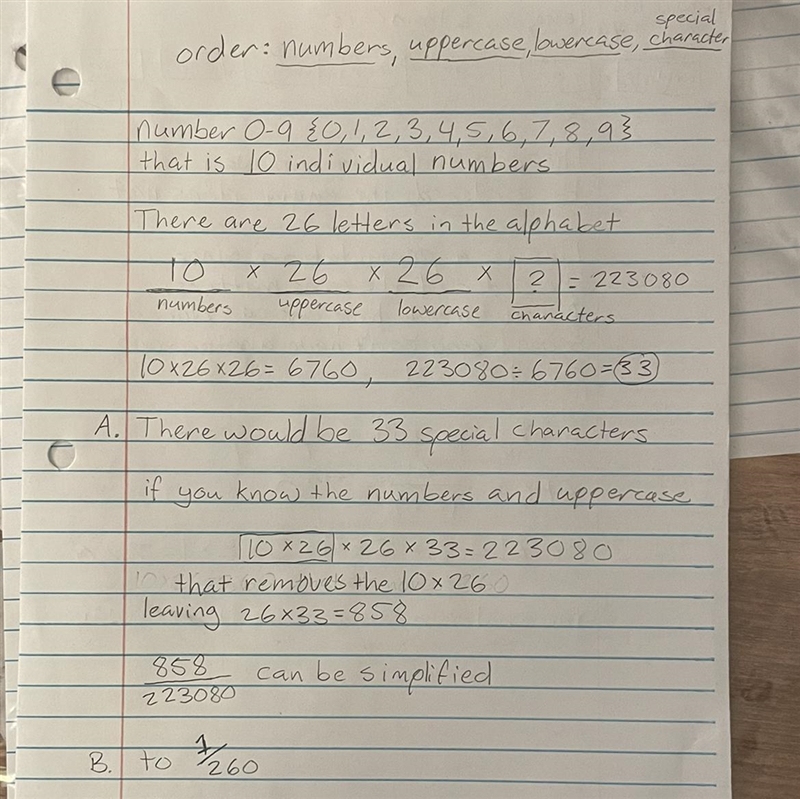 special
order: numbers, uppercase, lowercase, character
number 0-9 {0,1,2,3,4,5,6,7,8,9}
that is 10 individual numbers
There are 26 letters in the alphabet
10 x 26 x 26 x ? = 223080
numbers uppercase lowercase characters
10x26x26= 6760, 223080÷6760=33
A. There would be 33 special characters
if you know the numbers and uppercase
10 x 26 x 26 x 33 = 223080
that removes the 10 x 26
leaving 26x33=858
858
223080 can be simplified
B. to 1/260